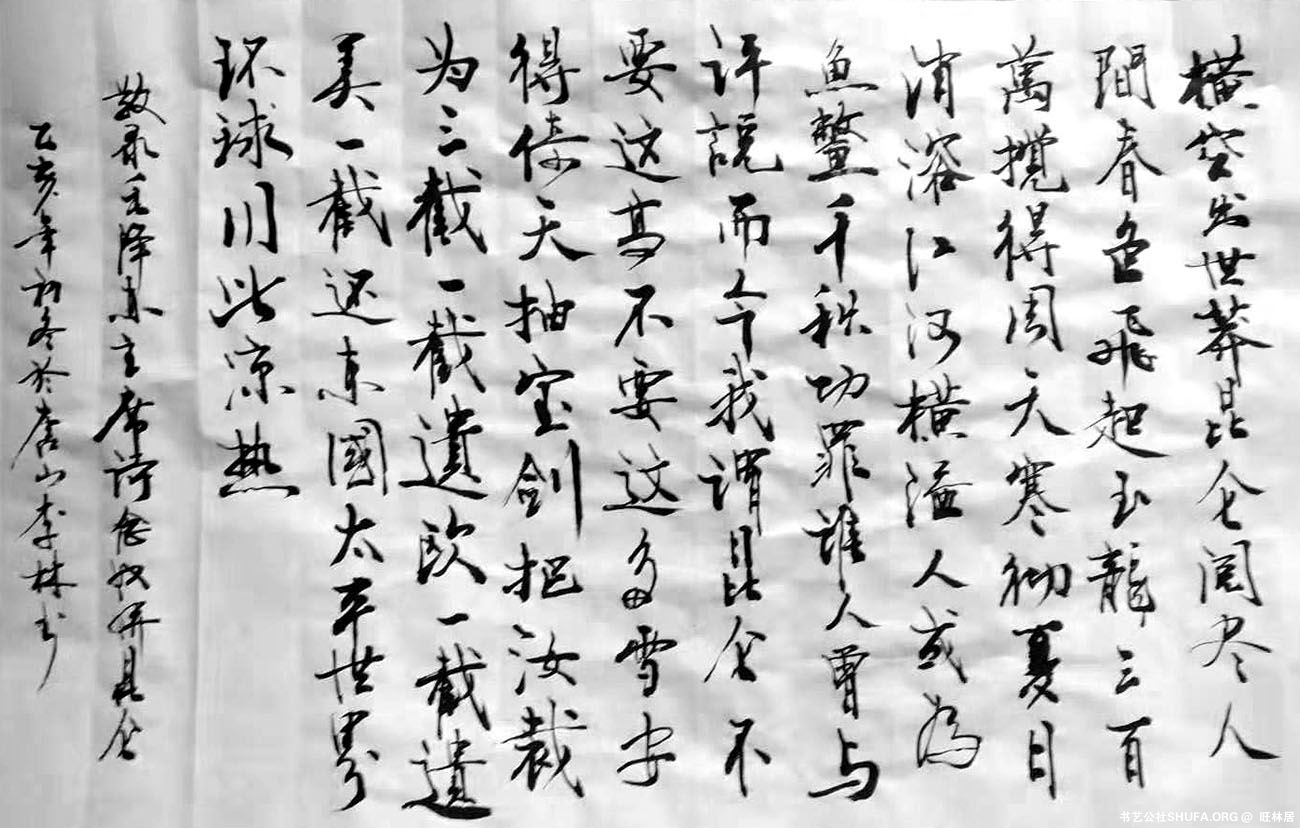 横空出世莽昆仑阅尽人
間春色飛起玉龍三百
萬搅得周天寒彻夏日
消溶江河横溢人或為
魚鳖千秋功罪谁人曾与
评説而今我謂昆仑不
要这高不要这多雪安
得倚天抽宝剑把汝裁
为三截一截遗欧一截遗
美一截还东國太平世界
环球同此凉热
敬录毛泽东主席诗念奴娇昆仑
乙亥年初冬於唐山李林书
书艺公社SHUFA.ORG @ 旺林居